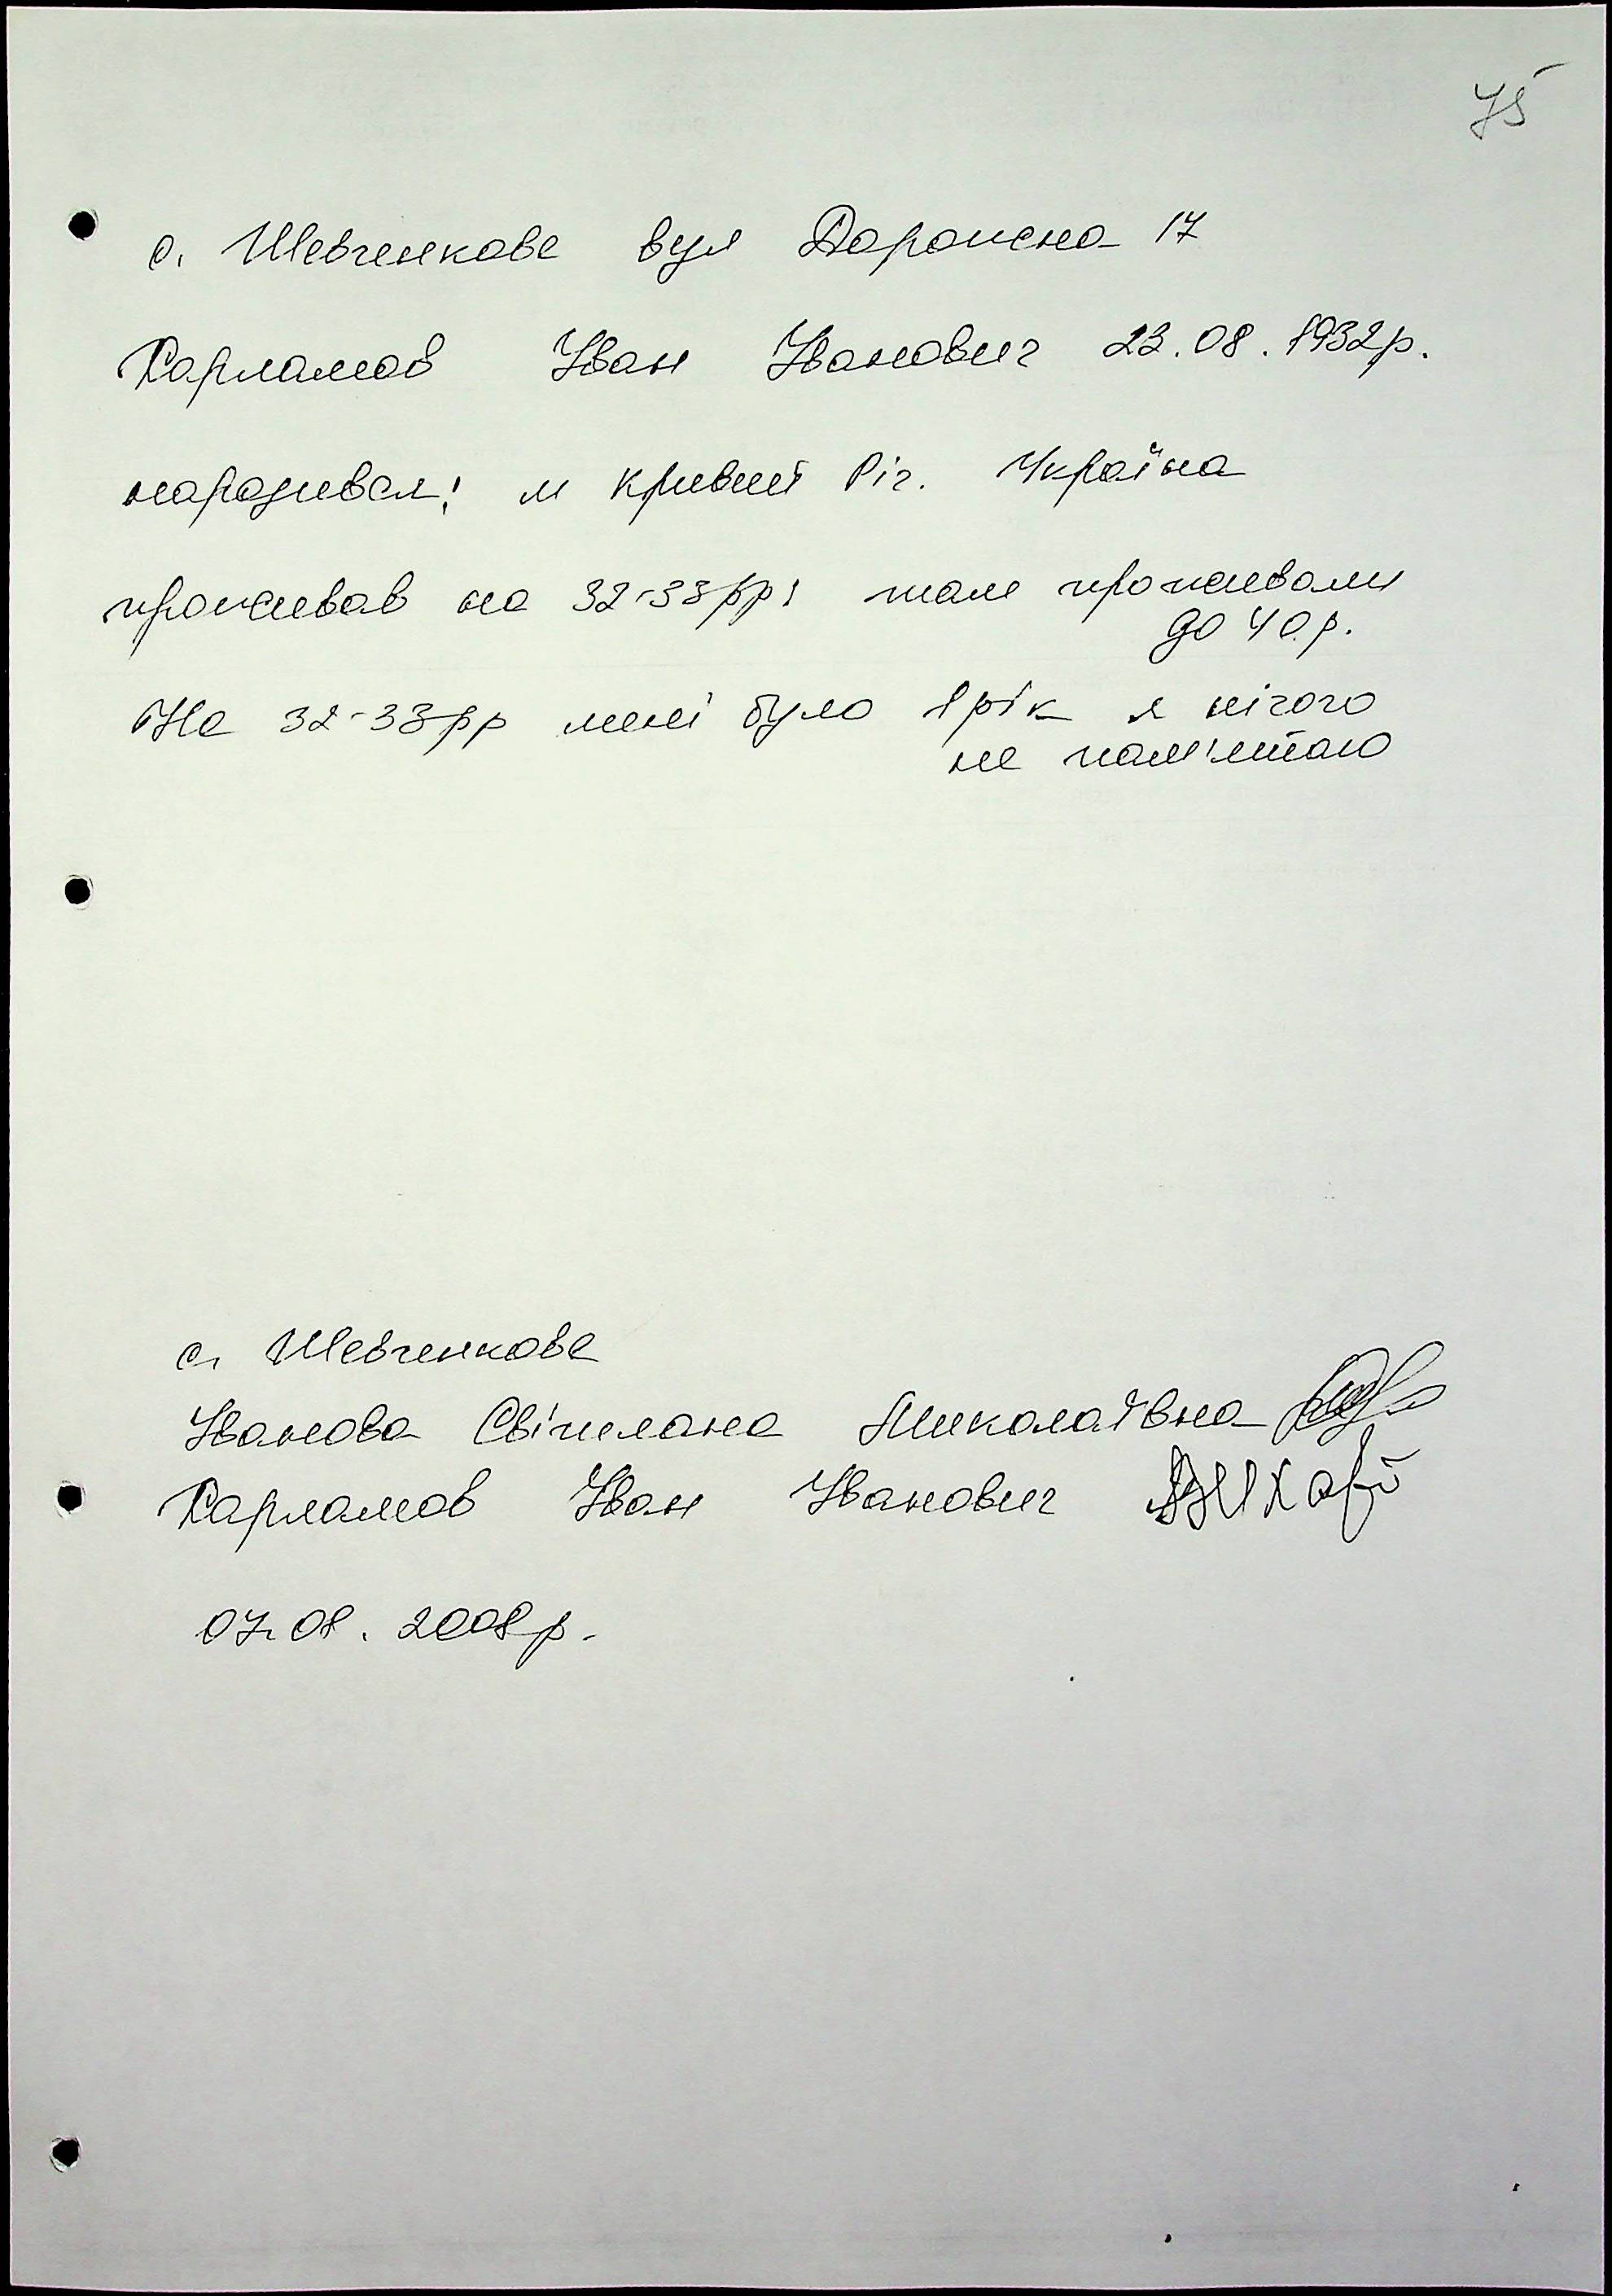 75
с. Шевченкове вул Дорожна 17
Харламов Іван Іванович 23.08.1932р.
народився: м Кривий Ріг. Україна
проживав на 32-33рр: там проживали
до 40.р.
На 32-33рр мені було 1 рік я нічого
не пам'ятаю
с. Шевченкове
Іванова Світлана Миколаївна
Харламов Іван Іванович
07.08.2008р.